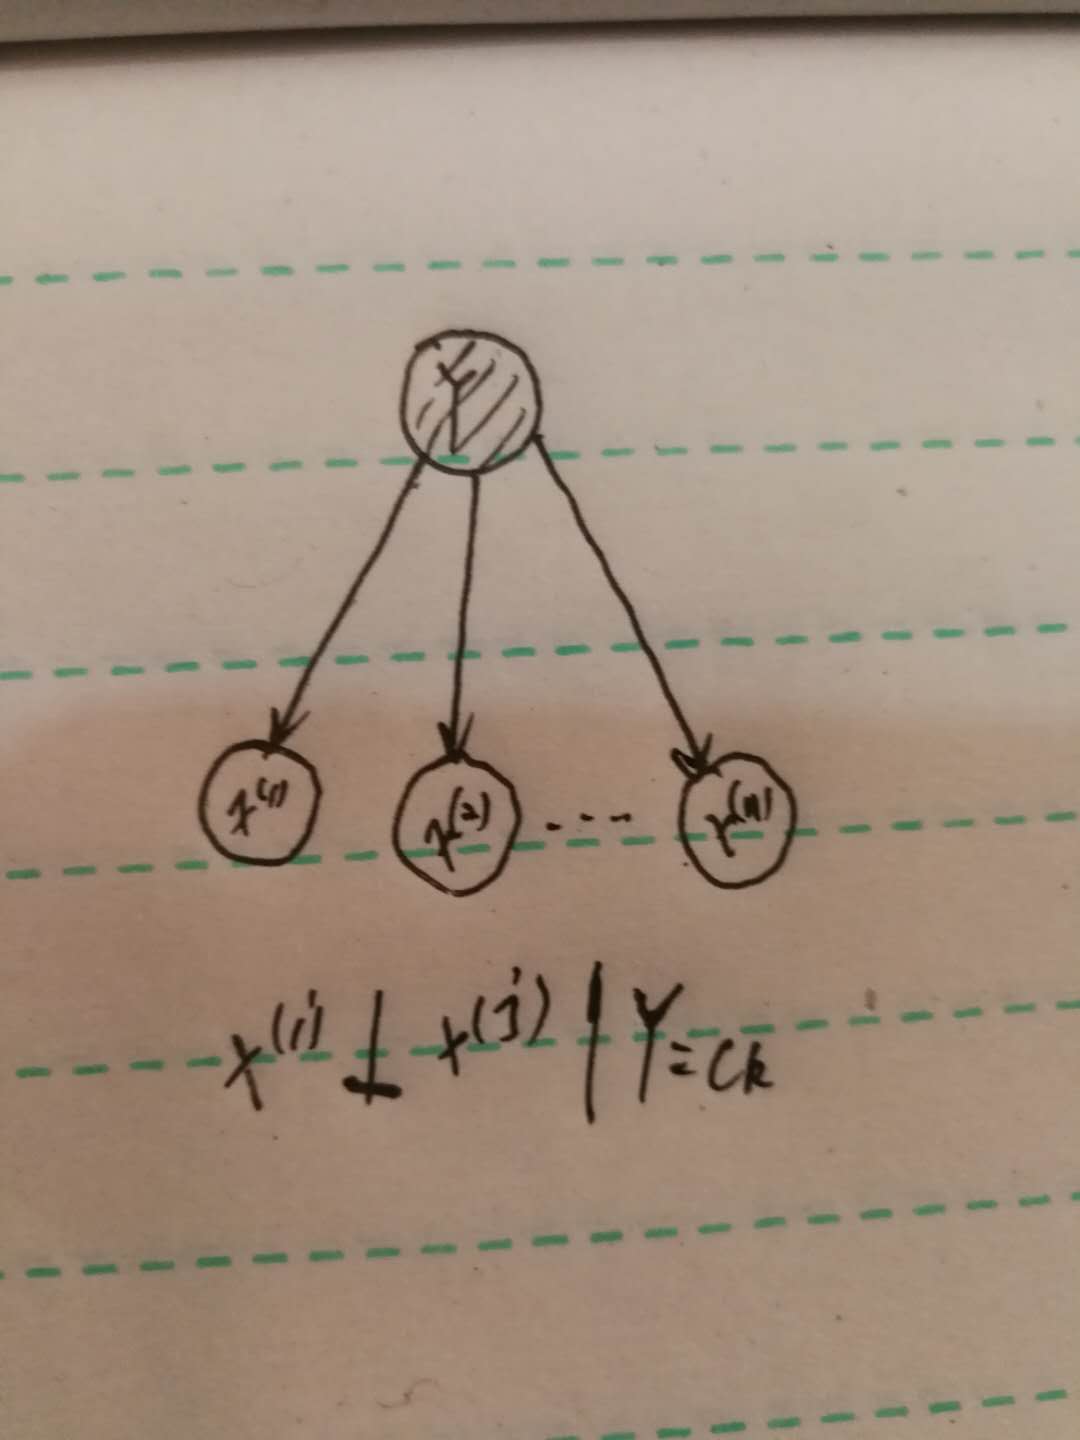 Y
x^(1) x^(2) ---- x^(n)
x^(i) ⊥ x^(j) | Y=Ck